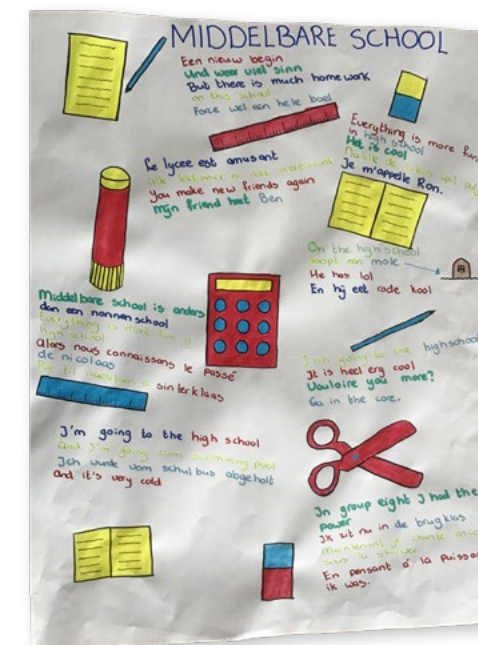 MIDDELBARE SCHOOL
Een nieuw begin
Und weer viel sinn
But there is much homework
on this school
Force wel een hele boel
Everything is more fun
in high school
Het is cool
Je m'appelle Ron.
Le lycee est amusant
You make new friends again
Mijn friend heet Ben
On the highschool
loopt een mole
He has lol
En hij eet rode kool
Middelbare school is anders
dan een nonnenschool
Everything is more fun in
highschool
alors nous connaissons le passé
de nicolaas
sinterklaas
I'm going to the highschool
It is heel erg cool
Vouloire you more?
Ga in the core.
I'm going to the high school
And I'm going vom swimming pool
Ich wurde vom schulbus abgeholt
and it's very cold
In group eight I had the
power
Ik zit nu in de brugklas
En pensant á la Puissan
ik was.